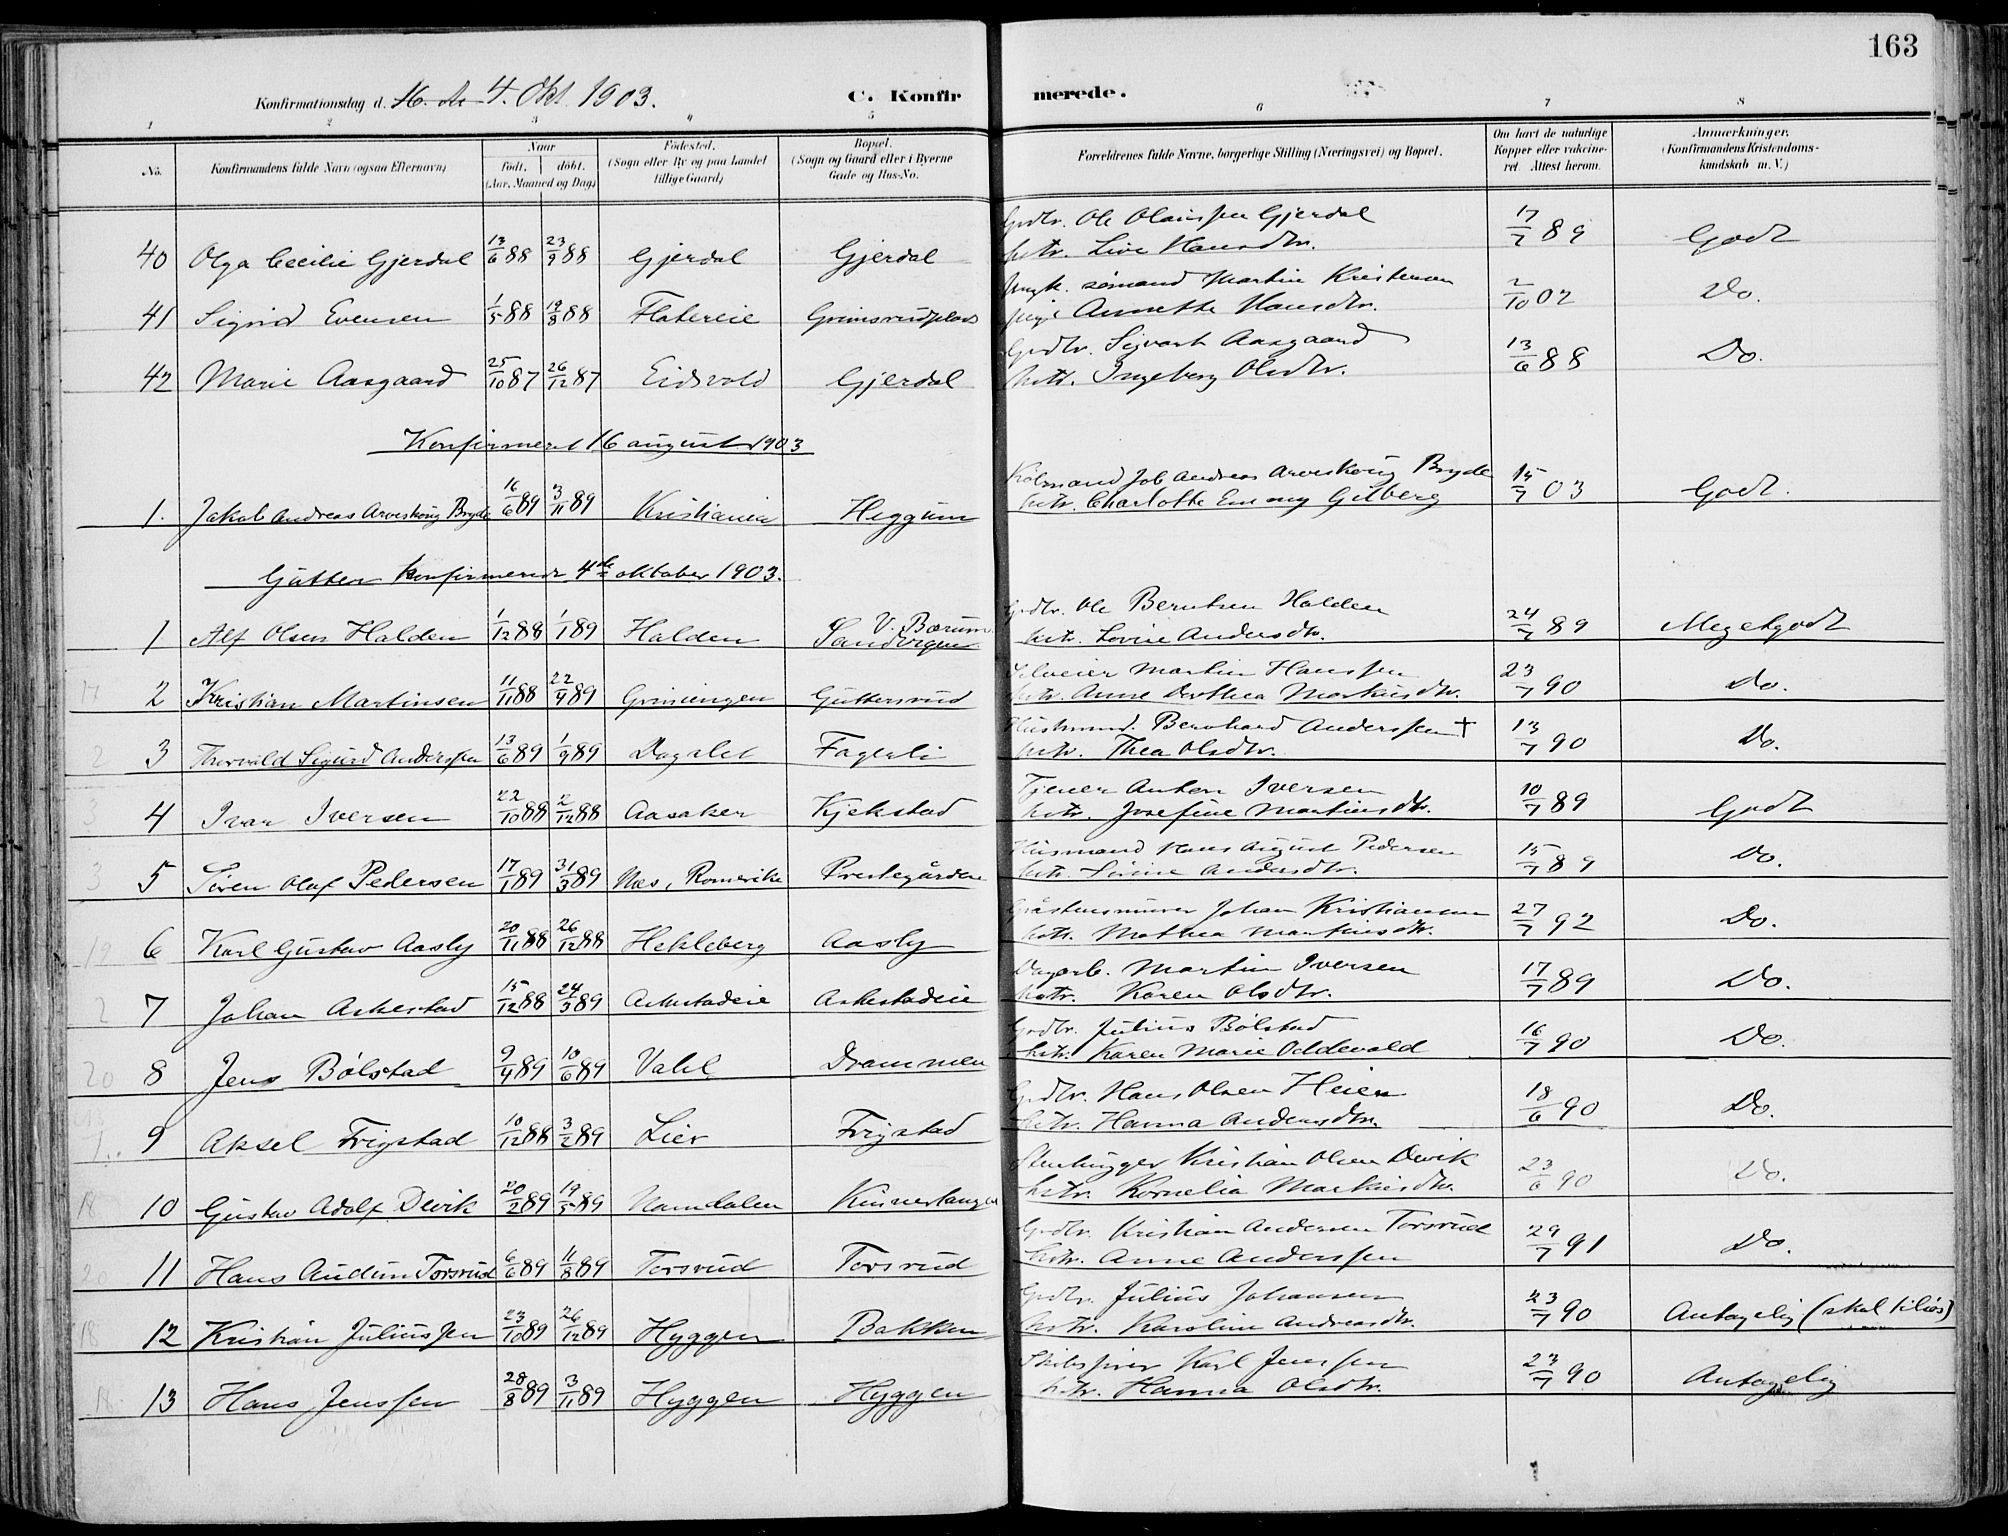 163
Konfirmationsdag d. 16. de 4. Okt. 1903. C. Konfirmerede.
1 2 3 4 5 6 7 8
No. Konfirmandens fulde Navn (ogsaa Efternavn) Naar født, døbt. (Aar, Maaned og Dag) Fødested. (Sogn eller By og paa Landet tillige Gaard) Bopæl. (Sogn og Gaard eller i Byerne Gade og Hus-No. Forældrenes fulde Navne, borgerlige Stilling (Næringsvei) og Bopæl. Om havt de naturlige Kopper eller vaccineret. Attest herom. Anmærkninger. (Konfirmandens Kristendomskundskab m. V.)
40 Olga Cecilie Gjerdal 13/6 88 23/9 88 Gjerdal Gjerdal Grdbr. Ole Gjerdal 17/7 89 Godt
hstr. Live Hansdtr.
41 Sigrid Evensen 1/5 88 19/8 88 Flatereie Grimsrudplads sømand Martin Kristensen 2/10 02 Do.
pige Annette Hansdtr.
42 Marie Aasgaard 25/10 87 26/12 87 Eidsvold Gjerdal Grdbr. Sigvart Aasgaard 13/6 88 Do.
hstr. Ingeborg Olsdtr.
Konfirmeret 16 august 1903
1. Jakob Andreas Arveskoug Bryde 16/6 89 3/11 89 Kristiania Heggum Kølmand Job Andreas Arveskoug Bryde 15/7 03 Godt.
hstr. Charlotte Emmy Gilberg
Gutter konfirmerede 4de oktober 1903.
1 Alf Olsen Halden 1/12 88 1/1 89 Halden V. Bærum Sandvigen Grdbr. Ole Berntsen Halden 24/7 89 Megetgodt
hstr. Lovise Andersdtr.
2 Kristian Martinsen 11/11 88 22/4 89 Griningen Guttersrud Selveier Martin Hanssen 23/7 90 Do.
hstr. Anne Dorthea Markusdtr.
3 Thorvald Sigurd Anderssen 13/6 89 1/9 89 Dagslet Fagerli Husmand. Bernhard Anderssen + 13/7 90 Do.
hstr. Thea Olsdtr.
4 Ivar Iversen 22/10 88 2/12 88 Aasaker Kjekstad Tjener Anton Iversen 10/7 89 Godt
hstr. Josefine Martinsdtr.
5 Søren Olaf Pedersen 17/1 89 31/3 89 Næs, Romerike Prestegården Husmand Hans August Pedersen 15/7 89 Do.
hstr. Sørine Andersdtr.
6 Karl Gustav Aasly 20/11 88 26/12 88 Hekleberg Aasly Gråstensmurer Johan Kristiansen 27/7 92 Do.
hstr. Mathea Martinsdtr.
7 Johan Askestad 15/12 88 24/3 89 Askestadeie Askestadeie Dagarb. Martin Iversen 17/7 89 Do.
hstr. Karen Olsdtr.
8 Jens Bølstad 9/4 89 10/6 89 Vahl Drammen Grdbr. Julius Bølstad 16/7 90 Do.
hstr. Karen Marie Oddevald
9 Aksel Frigstad 10/12 88 3/2 89 Lier Frigstad Grdbr. Hans Olsen Heien 18/6 90 Do.
hstr. Hanna Andersdtr.
10 Gustav Adolf Devik 20/2 89 19/5 89 Namdalen Kinnertangen Stenhugger Kristian Olsen Devik 23/6 90 Do.
hstr. Kornelia Markusdtr.
11 Hans Audun Torsrud 6/6 89 11/8 89 Torsrud Torsrud Grdbr. Kristian Andersen Torsrud 29/7 91 Do.
hstr. Anne Anderssen
12 Kristian Juliussen 23/10 89 26/12 89 Hyggen Bakken Grdbr. Julius Johansen 23/7 90 Antagelig (skal tilløs)
hstr. Karoline Andreasdtr.
13 Hans Jenssen 28/8 89 3/11 89 Hyggen Hyggen Skibsfører Karl Jenssen 23/7 90 Antagelig
hstr. Hanna Olsdtr.